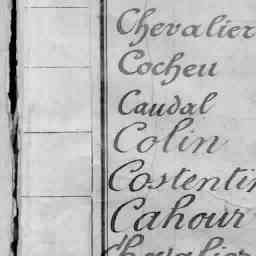 Chevalier
Cocheu
Caudal
Colin
Costentin
Cahour
Chevalier